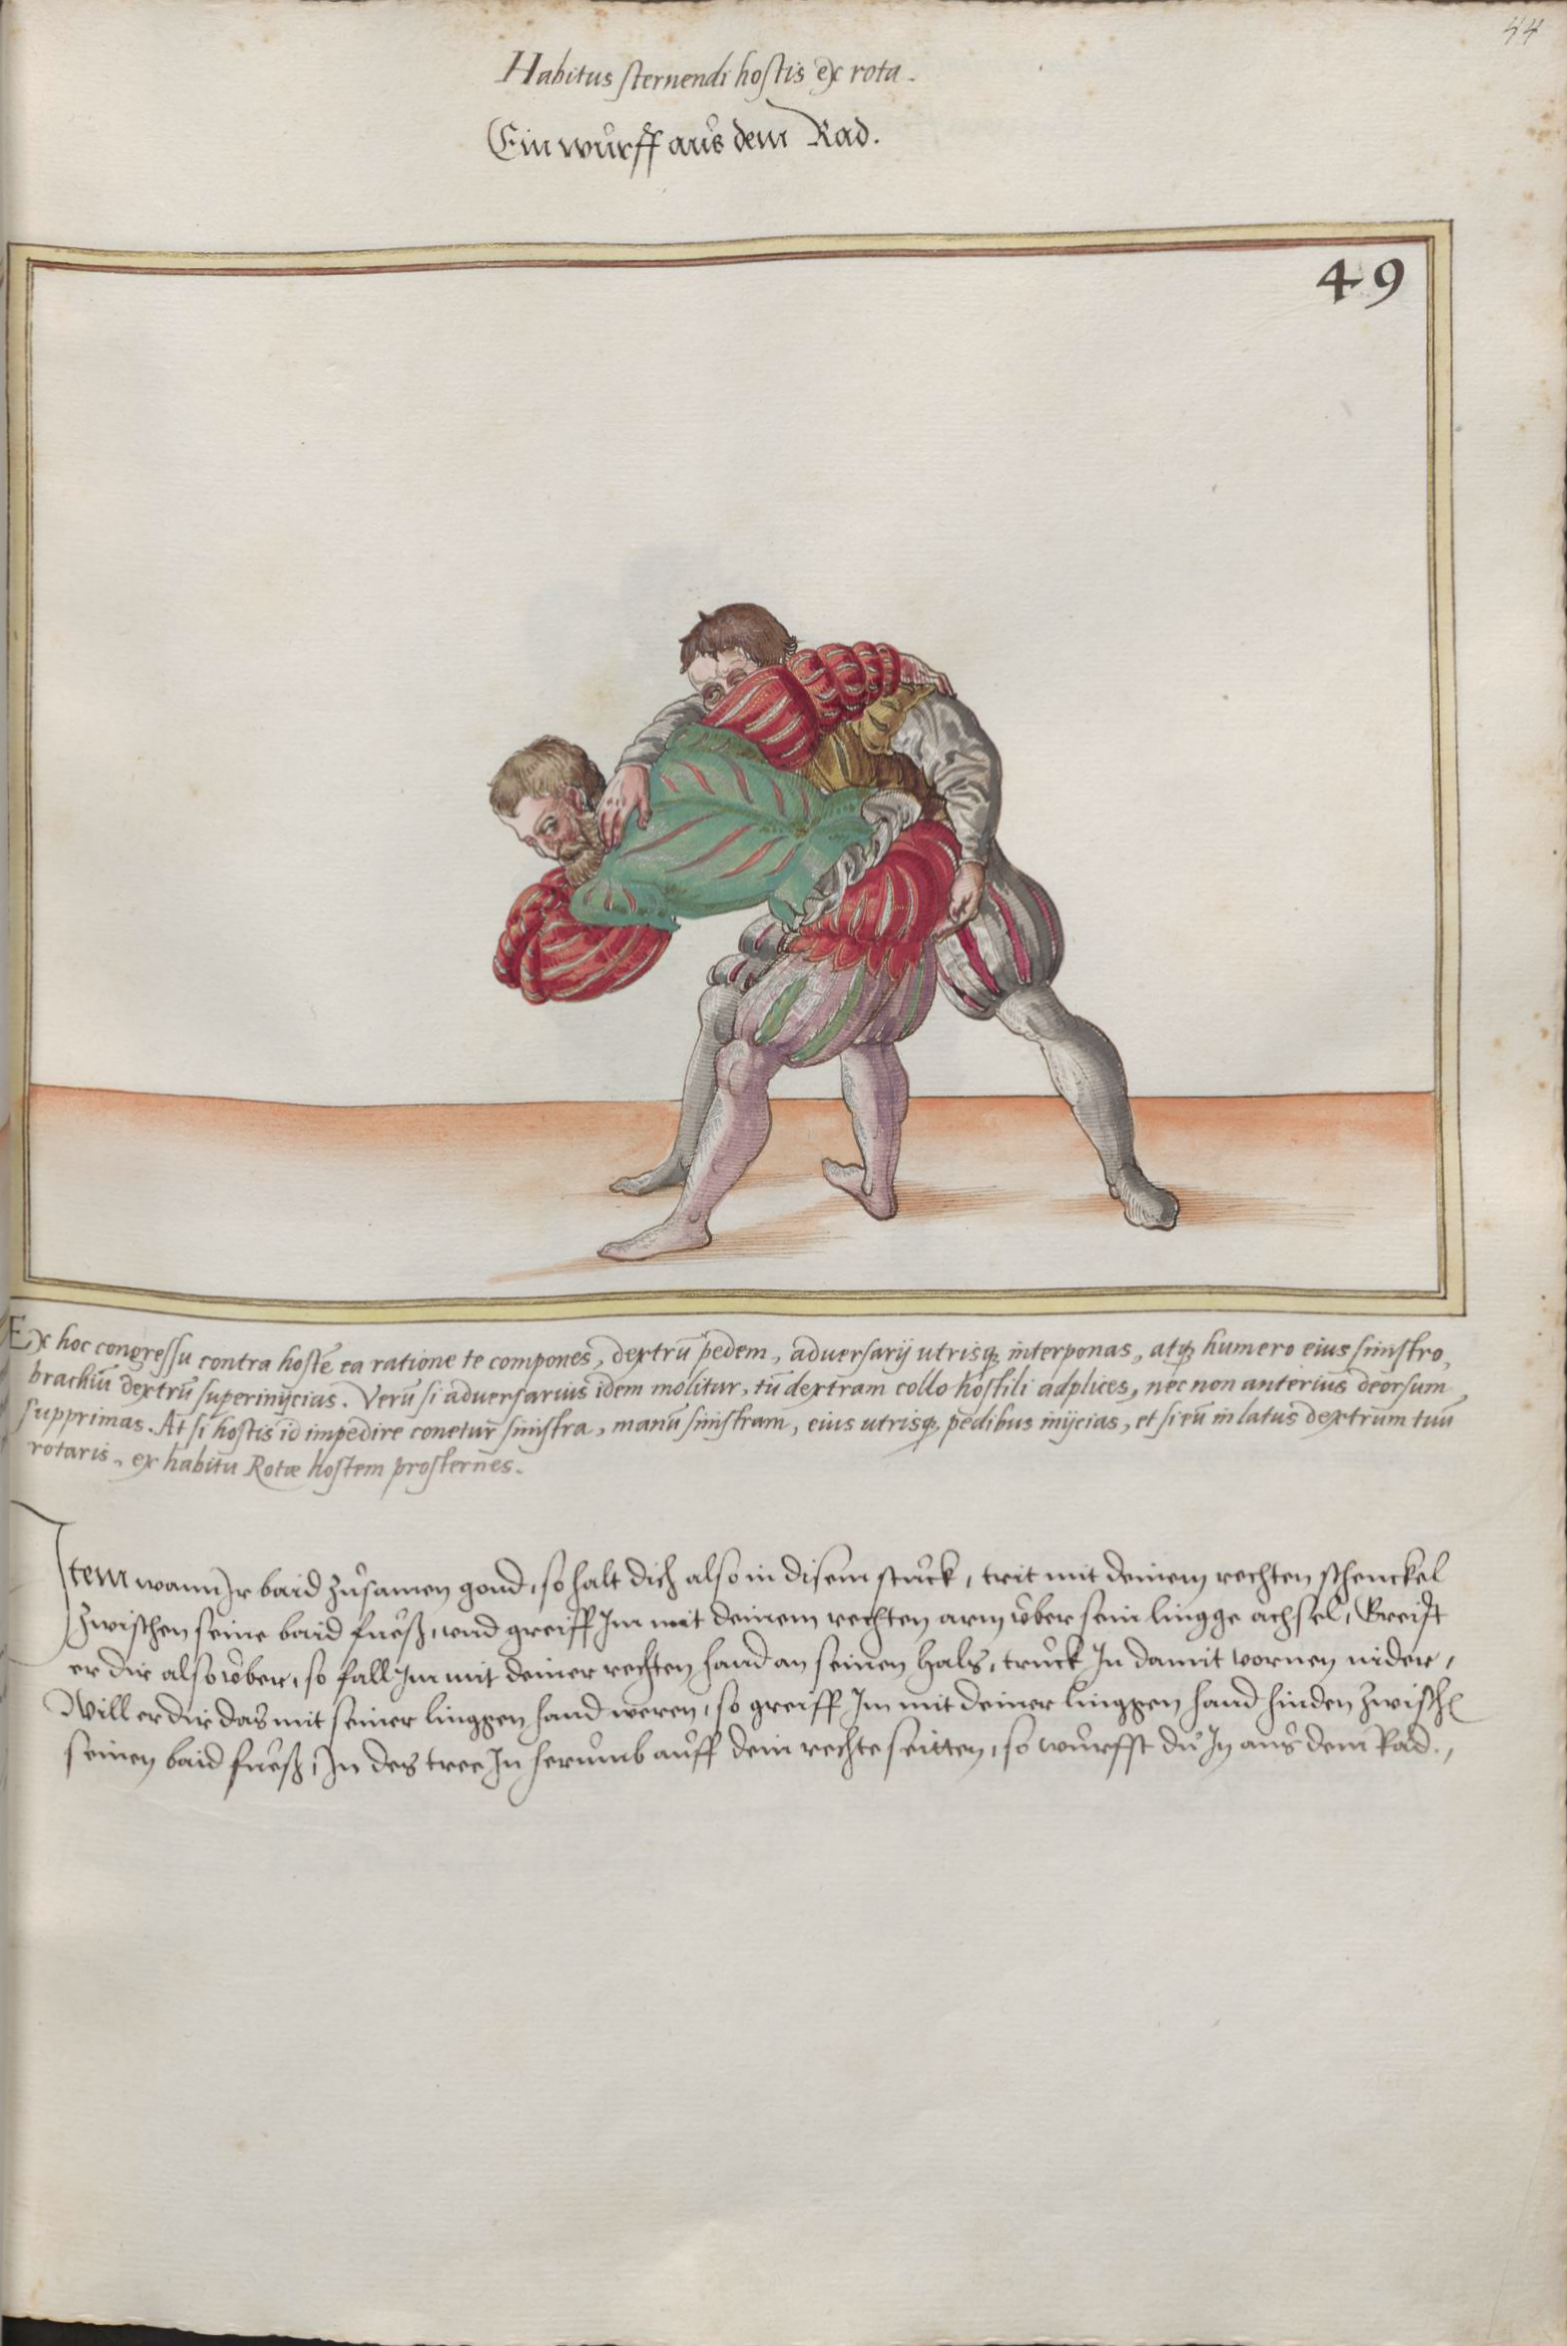 44
Habitus sternendi hostis ex rota.
Ein wůrff aůs dem Rad.
49
Ex hoc congressu contra hostē ea ratione te compones, dextrū pedem, adversarij utrisq; interponas, atq; humero eius sinistro,
brachiū dextrū superinijcias. Verū si adversarius idem molitur, tū dextram collo hostili adplices, nec non anterius deorsum
supprimas. At si hostis id impedire conetur sinistra, manū sinistram, eius utrisq; pedibus inijcias, et si eū in latus dextrum tuū
rotaris, ex habitu Rotæ hostem prosternes.
Item wann Jr baid zůsamen gond, so halt dich also in disem stůck, trit mit deinem rechten schenckel
zwischen seine baid fůeß, und greiff Jm mit deinem rechten arm ůber sein lingge achsel, Greift
er dir also ůber, so fall Jm mit deiner rechten hand an seinen hals, truck Jn damit vornen nider,
Will er dir das mit seiner linggen hand weren, so greiff Jm mit deiner linggen hand hinden zwisch
seinen baid fůeß, Jn des tree Jn herůmb aůff dein rechte seitten, so wůrfst dů Jn aůs dem Rad.,